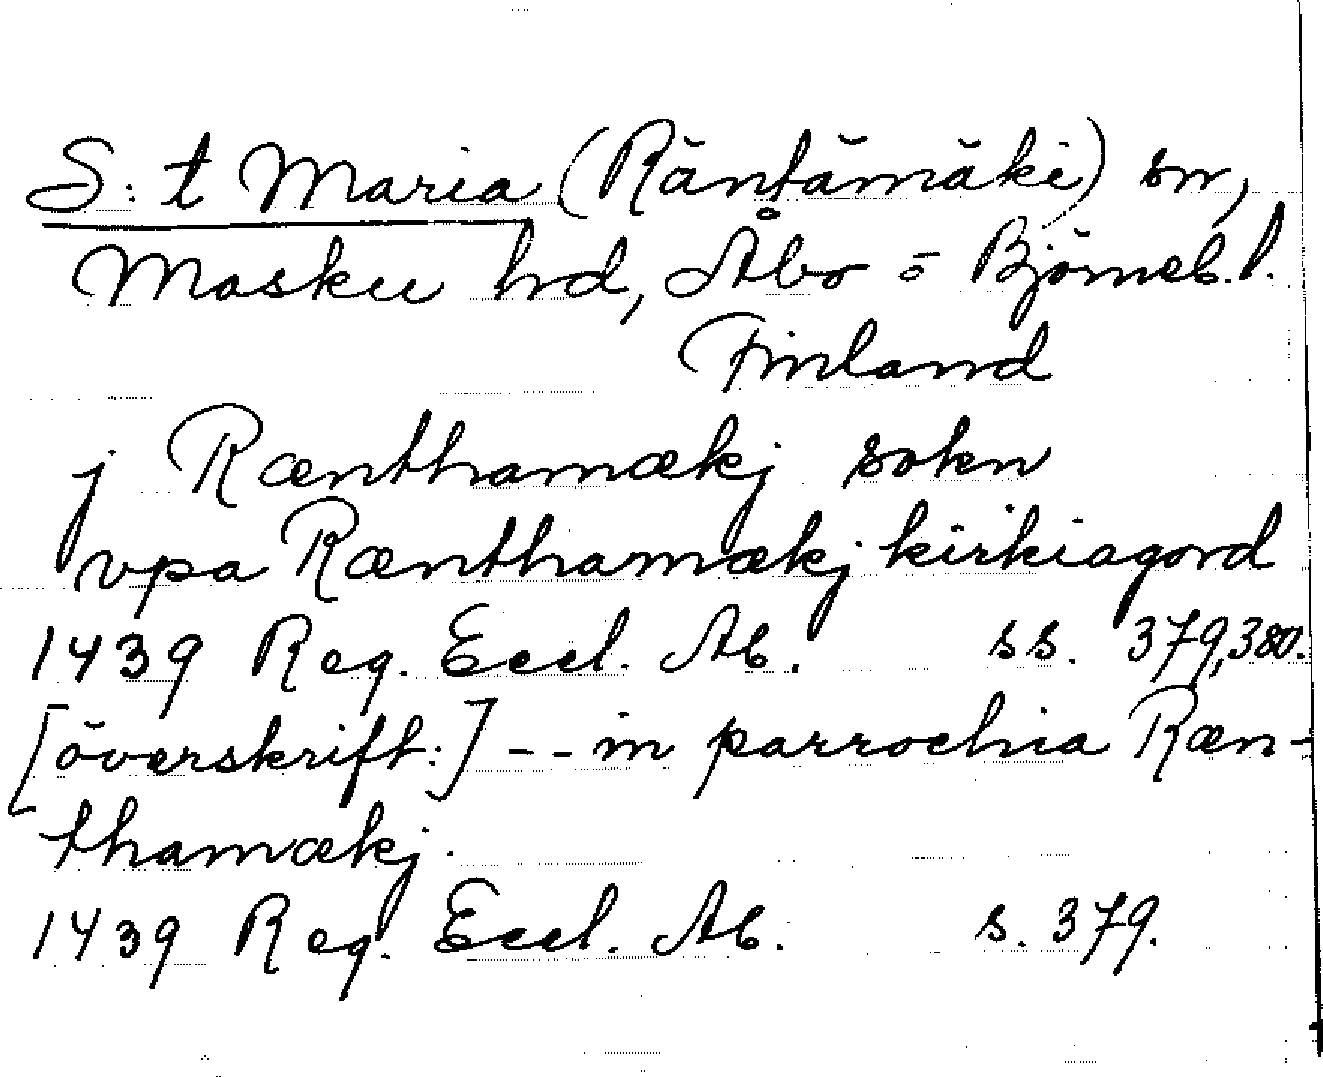 S:t Maria (Räntämäki) sn,
Masku hd, Åbo o Björneb. l.
Finland
j Rænthamækj sokn
vpa Rænthamækj kirkiagord
1439 Reg. Eccl. Ab. ss. 379, 380.
[överskrift:] - - in parrochia Ræn-
thamækj.
1439 Reg. Eccl. Ab. s. 379.